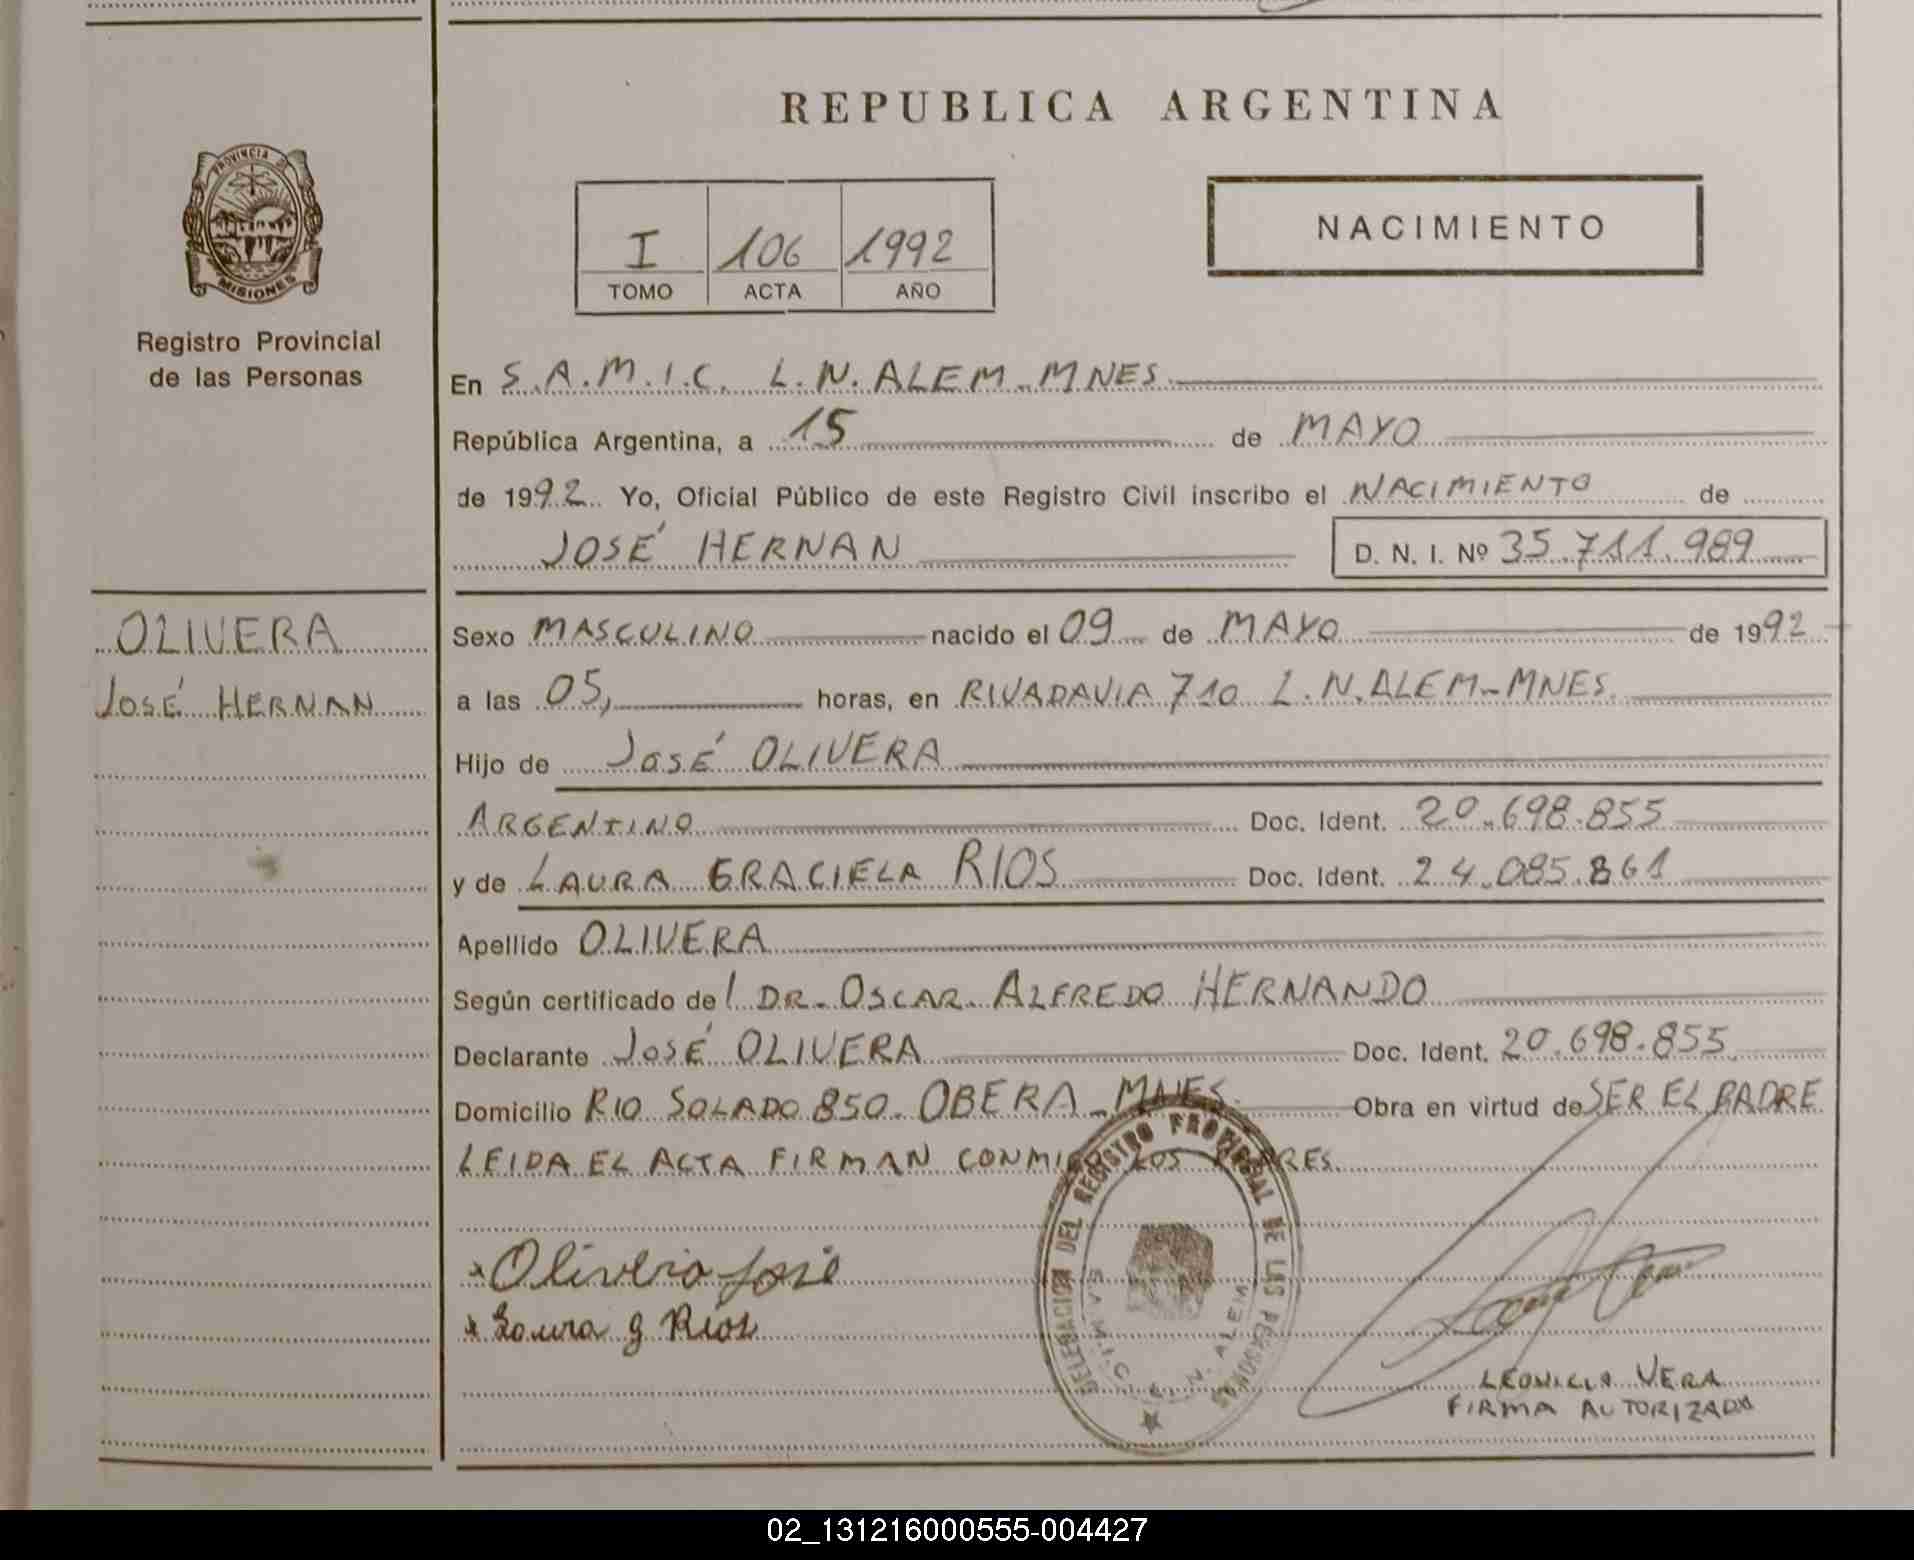 REPUBLICA ARGENTINA
PROVINCIA DE
MISIONES
Registro Provincial
de las Personas
I 106 1992
TOMO ACTA AÑO
NACIMIENTO
En S.A.M.I.C. L.N. ALEM-MNES
República Argentina, a 15 de MAYO
de 1992 Yo, Oficial Público de este Registro Civil inscribo el NACIMIENTO de
JOSÉ HERNAN D. N. I. Nº 35.711.989
OLIVERA
JOSÉ HERNAN
Sexo MASCULINO nacido el 09 de MAYO de 1992
a las 05, horas, en RIVADAVIA 710 L.N. ALEM-MNES.
Hijo de JOSÉ OLIVERA
ARGENTINO Doc. Ident. 20.698.855
y de LAURA GRACIELA RIOS Doc. Ident. 24.085.861
Apellido OLIVERA
Según certificado del DR. OSCAR ALFREDO HERNANDO
Declarante JOSÉ OLIVERA Doc. Ident. 20.698.855
Domicilio RIO SOLADO 850. OBERA-MNES. Obra en virtud de SER EL PADRE
LEIDA EL ACTA FIRMAN CONMIGO LOS PADRES.
Olivera José
Laura g Rios
DELEGACION DEL REGISTRO PROVINCIAL DE LAS PERSONAS
S.A.M.I.C. L.N. ALEM
LEONICIA VERA
FIRMA AUTORIZADA
02_131216000555-004427